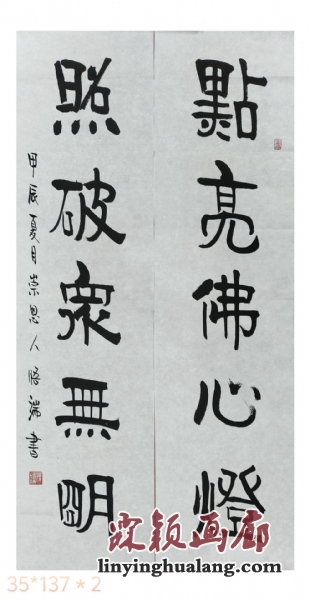 點亮佛心燈
照破眾無明
甲辰夏月崇恩人悟瑞書
霖颖画廊
linyinghualang.com
35*137*2